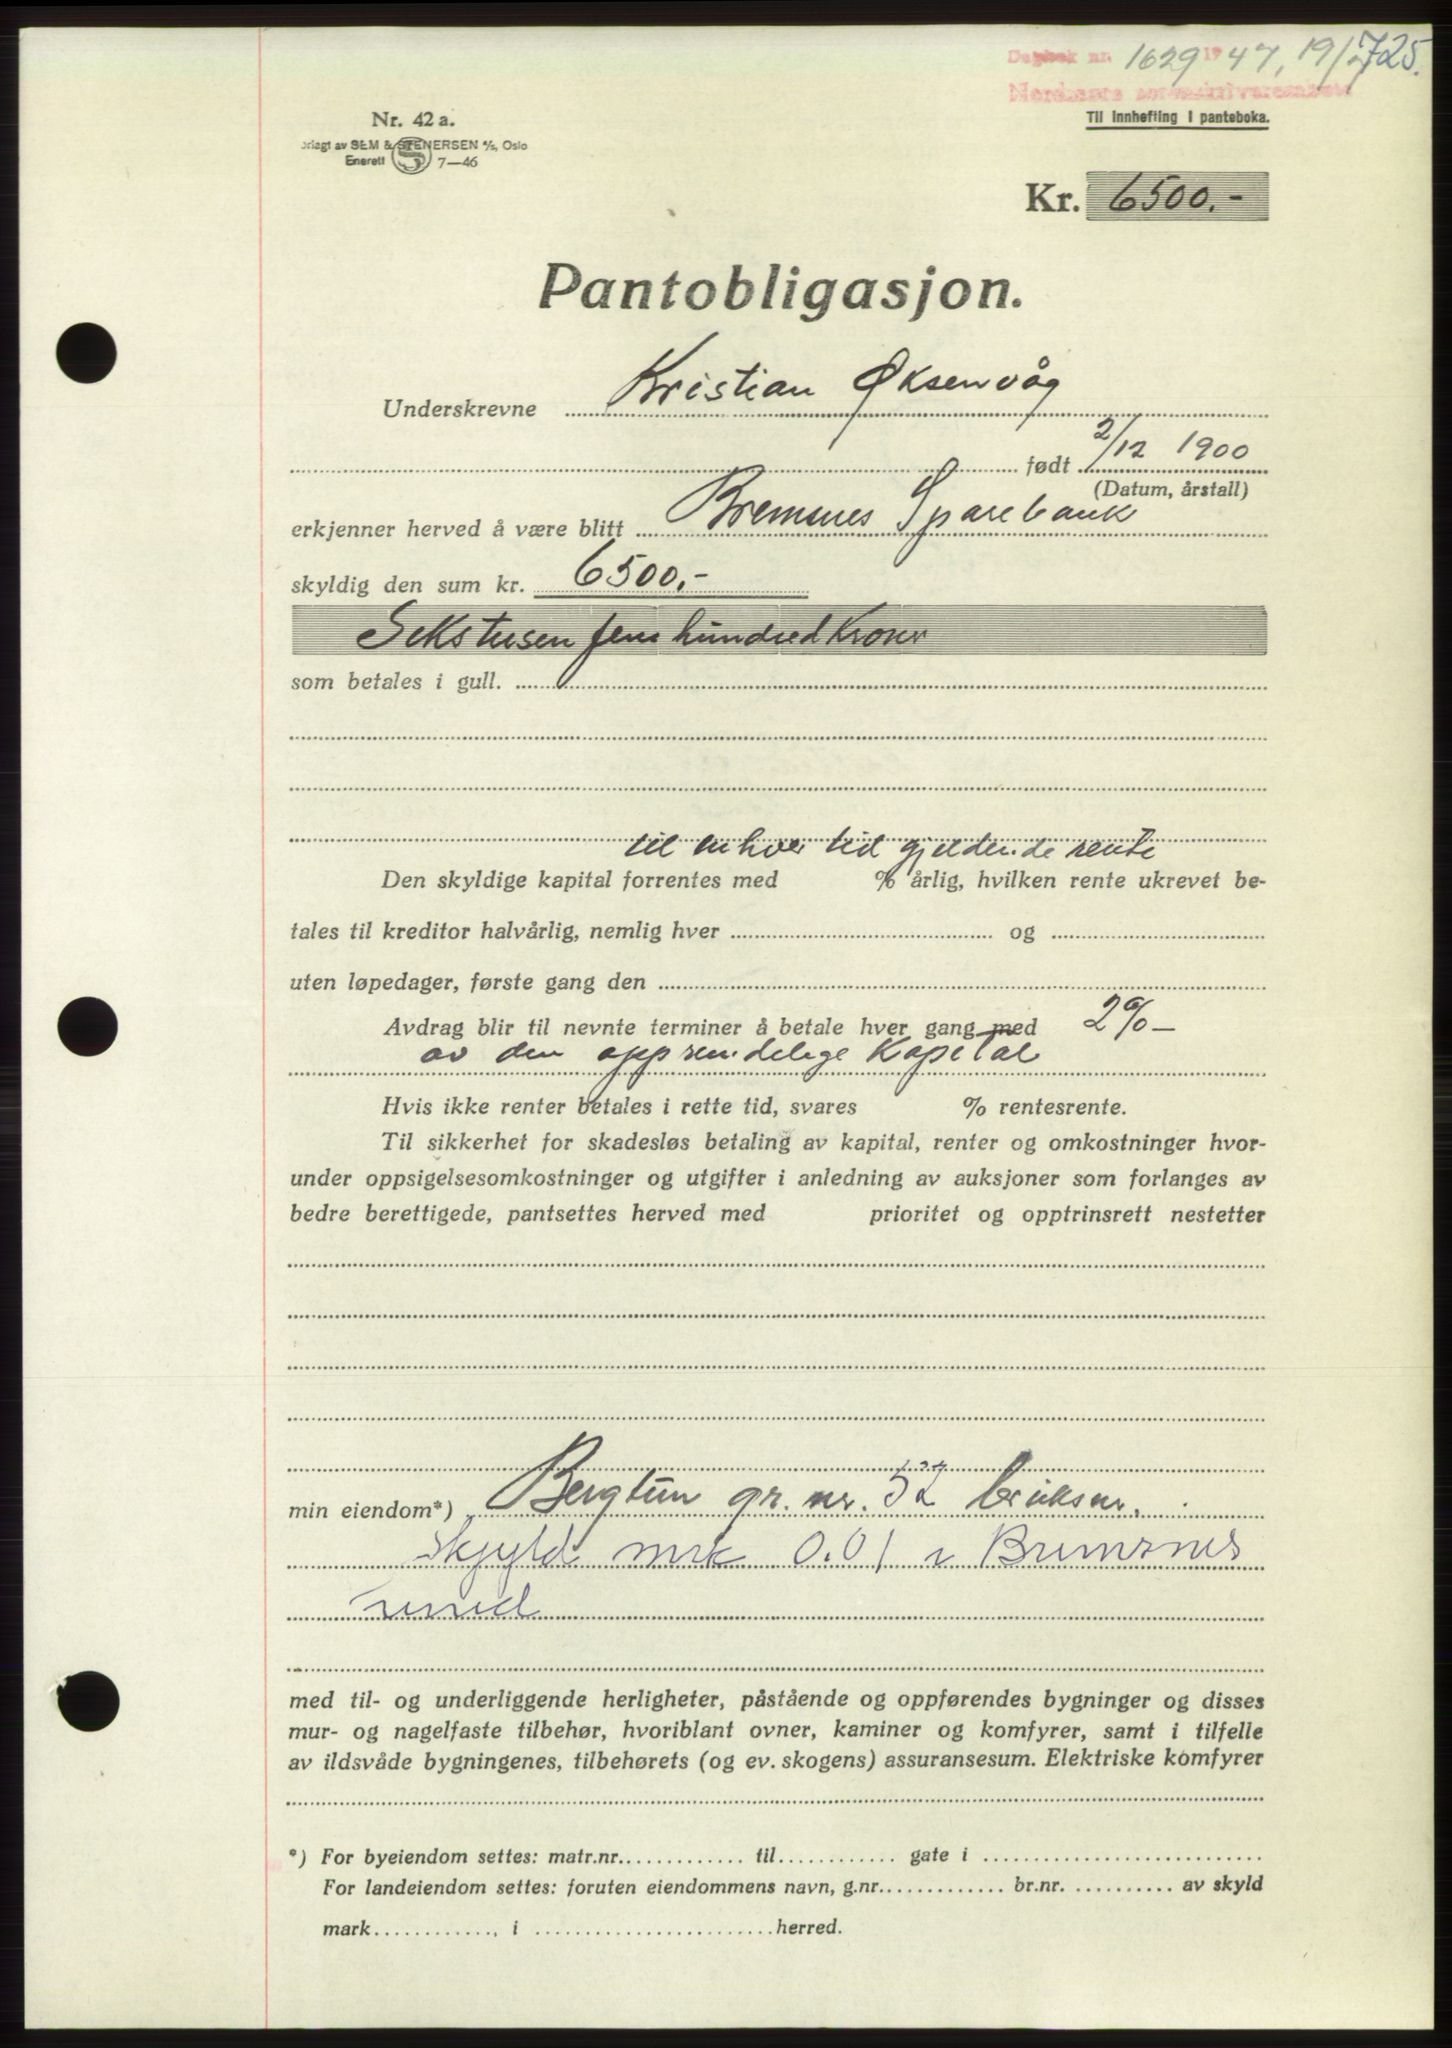 Dagbok nr. 1629 1947, 19/ 725.
Nordmøre sorenskriverembete
Nr. 42 a.
Til innhefting i panteboka.
orlagt av SEM & STENERSEN A/S, Oslo
Enerett S 7—46
Kr. 6500.-
Pantobligasjon.
Underskrevne Kristian Øksenvåg
født 2/12 1900
(Datum, årstall)
erkjenner herved å være blitt Bremsnes Sparebank
skyldig den sum kr. 6500,-
Sekstusen fem hundred Kroner
som betales i gull.
til en hver tid gjeldende rente
Den skyldige kapital forrentes med % årlig, hvilken rente ukrevet be-
tales til kreditor halvårlig, nemlig hver og
uten løpedager, første gang den
Avdrag blir til nevnte terminer å betale hver gang med 2% -
av den opprendelige Kapital
Hvis ikke renter betales i rette tid, svares % rentesrente.
Til sikkerhet for skadesløs betaling av kapital, renter og omkostninger hvor-
under oppsigelsesomkostninger og utgifter i anledning av auksjoner som forlanges av
bedre berettigede, pantsettes herved med prioritet og opptrinsrett nestetter
min eiendom*) Bergtun gr. nr. 52 bruksnr.
Skyld mrk 0.01 i Bremsnes
med til- og underliggende herligheter, påstående og oppførendes bygninger og disses
mur- og nagelfaste tilbehør, hvoriblant ovner, kaminer og komfyrer, samt i tilfelle
av ildsvåde bygningenes, tilbehørets (og ev. skogens) assuransesum. Elektriske komfyrer
*) For byeiendom settes: matr.nr. til gate i
For landeiendom settes: foruten eiendommens navn, g.nr. br.nr. av skyld
mark , i herred.